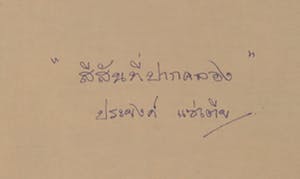 "สีสันที่ปากคลอง"
ประยงค์ แซ่เตีย